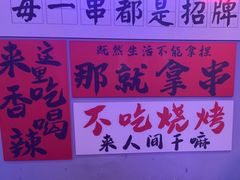 每一串都是招牌
来这里吃喝香辣
既然生活不能拿捏
那就拿串
不吃烧烤
来人间干嘛